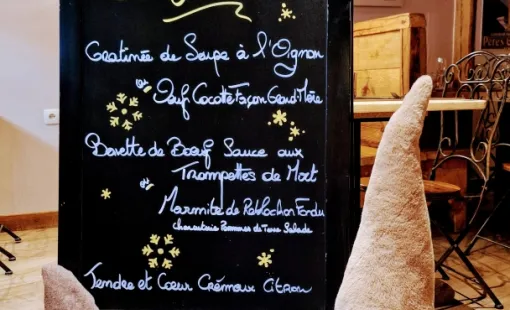 Gratinée de Soupe à l'Oignon
ou
Oeuf Cocotte Façon Grand-Mère
Bavette de Boeuf Sauce aux
Trompettes de Mort
ou
Marmite de Reblochon Fondu
Charcuterie Pommes de Terre Salade
Tendre et Coeur Crémeux Citron